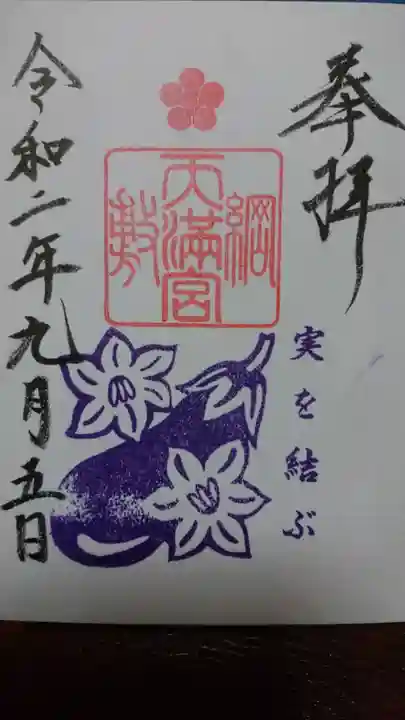 奉拝
綱敷天満宮
実を結ぶ
令和二年九月五日